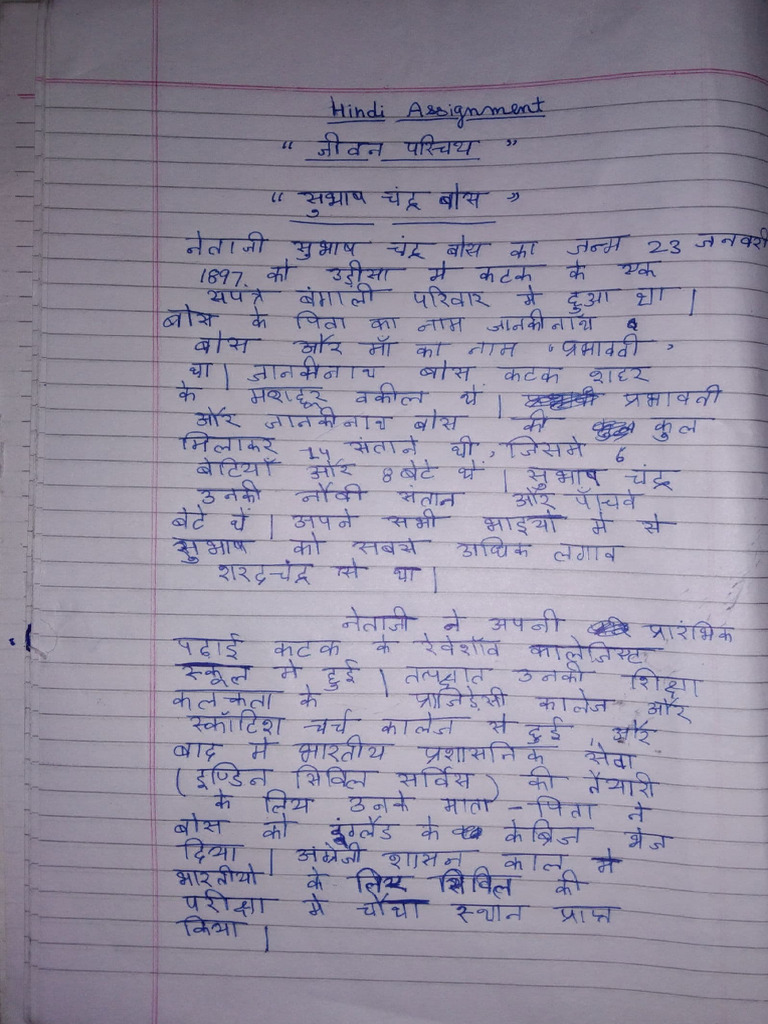 Hindi Assignment
" जीवन परिचय "
" सुभाष चंद्र बोस "
नेताजी सुभाष चंद्र बोस का जन्म 23 जनवरी
1897. को उड़ीसा मे कटक के एक
संपन्न बंगाली परिवार मे हुआ था |
बोस के पिता का नाम जानकीनाथ
बोस और माँ का नाम 'प्रभावती'
था | जानकीनाथ बोस कटक शहर
के मशहूर वकील थे | प्रभावती
और जानकीनाथ बोस की कुल
मिलाकर 14 संताने थी, जिसमे 6
बेटियाँ और 8 बेटे थे | सुभाष चंद्र
उनकी नौवी संतान और पाँचवे
बेटे थे | अपने सभी भाइयो मे से
सुभाष को सबसे अधिक लगाव
शरदचंद्र से था |
नेताजी ने अपनी प्रारंभिक
पढाई कटक के रेवेशॉव कालेजिस्ट
स्कूल मे हुई | तत्पश्चात उनकी शिक्षा
कलकता के प्राजिडेंसी कालेज और
स्कॉटिश चर्च कालेज से हुई, और
बाद मे भारतीय प्रशासनिक सेवा
(इण्डिन सिविल सर्विस) की तैयारी
के लिय उनके माता-पिता ने
बोस को इंग्लैंड के केब्रिज भेज
दिया | अंग्रेजी शासन काल मे
भारतीयो के लिए सिविल की
परीक्षा मे चौथा स्थान प्राप्त
किया |